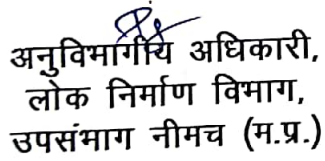 अनुविभागीय अधिकारी,
लोक निर्माण विभाग,
उपसंभाग नीमच (म.प्र.)